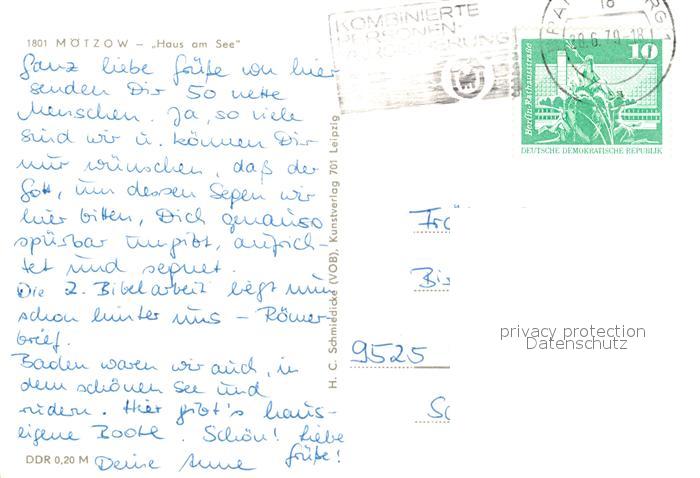 1801 MÖTZOW – „Haus am See"
Ganz liebe Grüße von hier
senden Dir 50 nette
Menschen. Ja, so viele
sind wir u. können Dir
nur wünschen, daß der
Gott, um dessen Segen wir
hier bitten, Dich genauso
spürbar umgibt, aufrich-
tet und segnet.
Die 2. Bibelarbeit liegt nun
schon hinter uns – Römer-
brief.
Baden waren wir auch, in
dem schönen See und
rudern. Hier gibt's haus-
eigene Boote. Schön! Liebe
Grüße!
Deine Anne
DDR 0,20 M
H. C. Schmiedicke (VOB), Kunstverlag 701 Leipzig
KOMBINIERTE
PERSONEN-
28.6.79-18
10
Berlin, Rathausstraße
DEUTSCHE DEMOKRATISCHE REPUBLIK
9525
privacy protection
Datenschutz